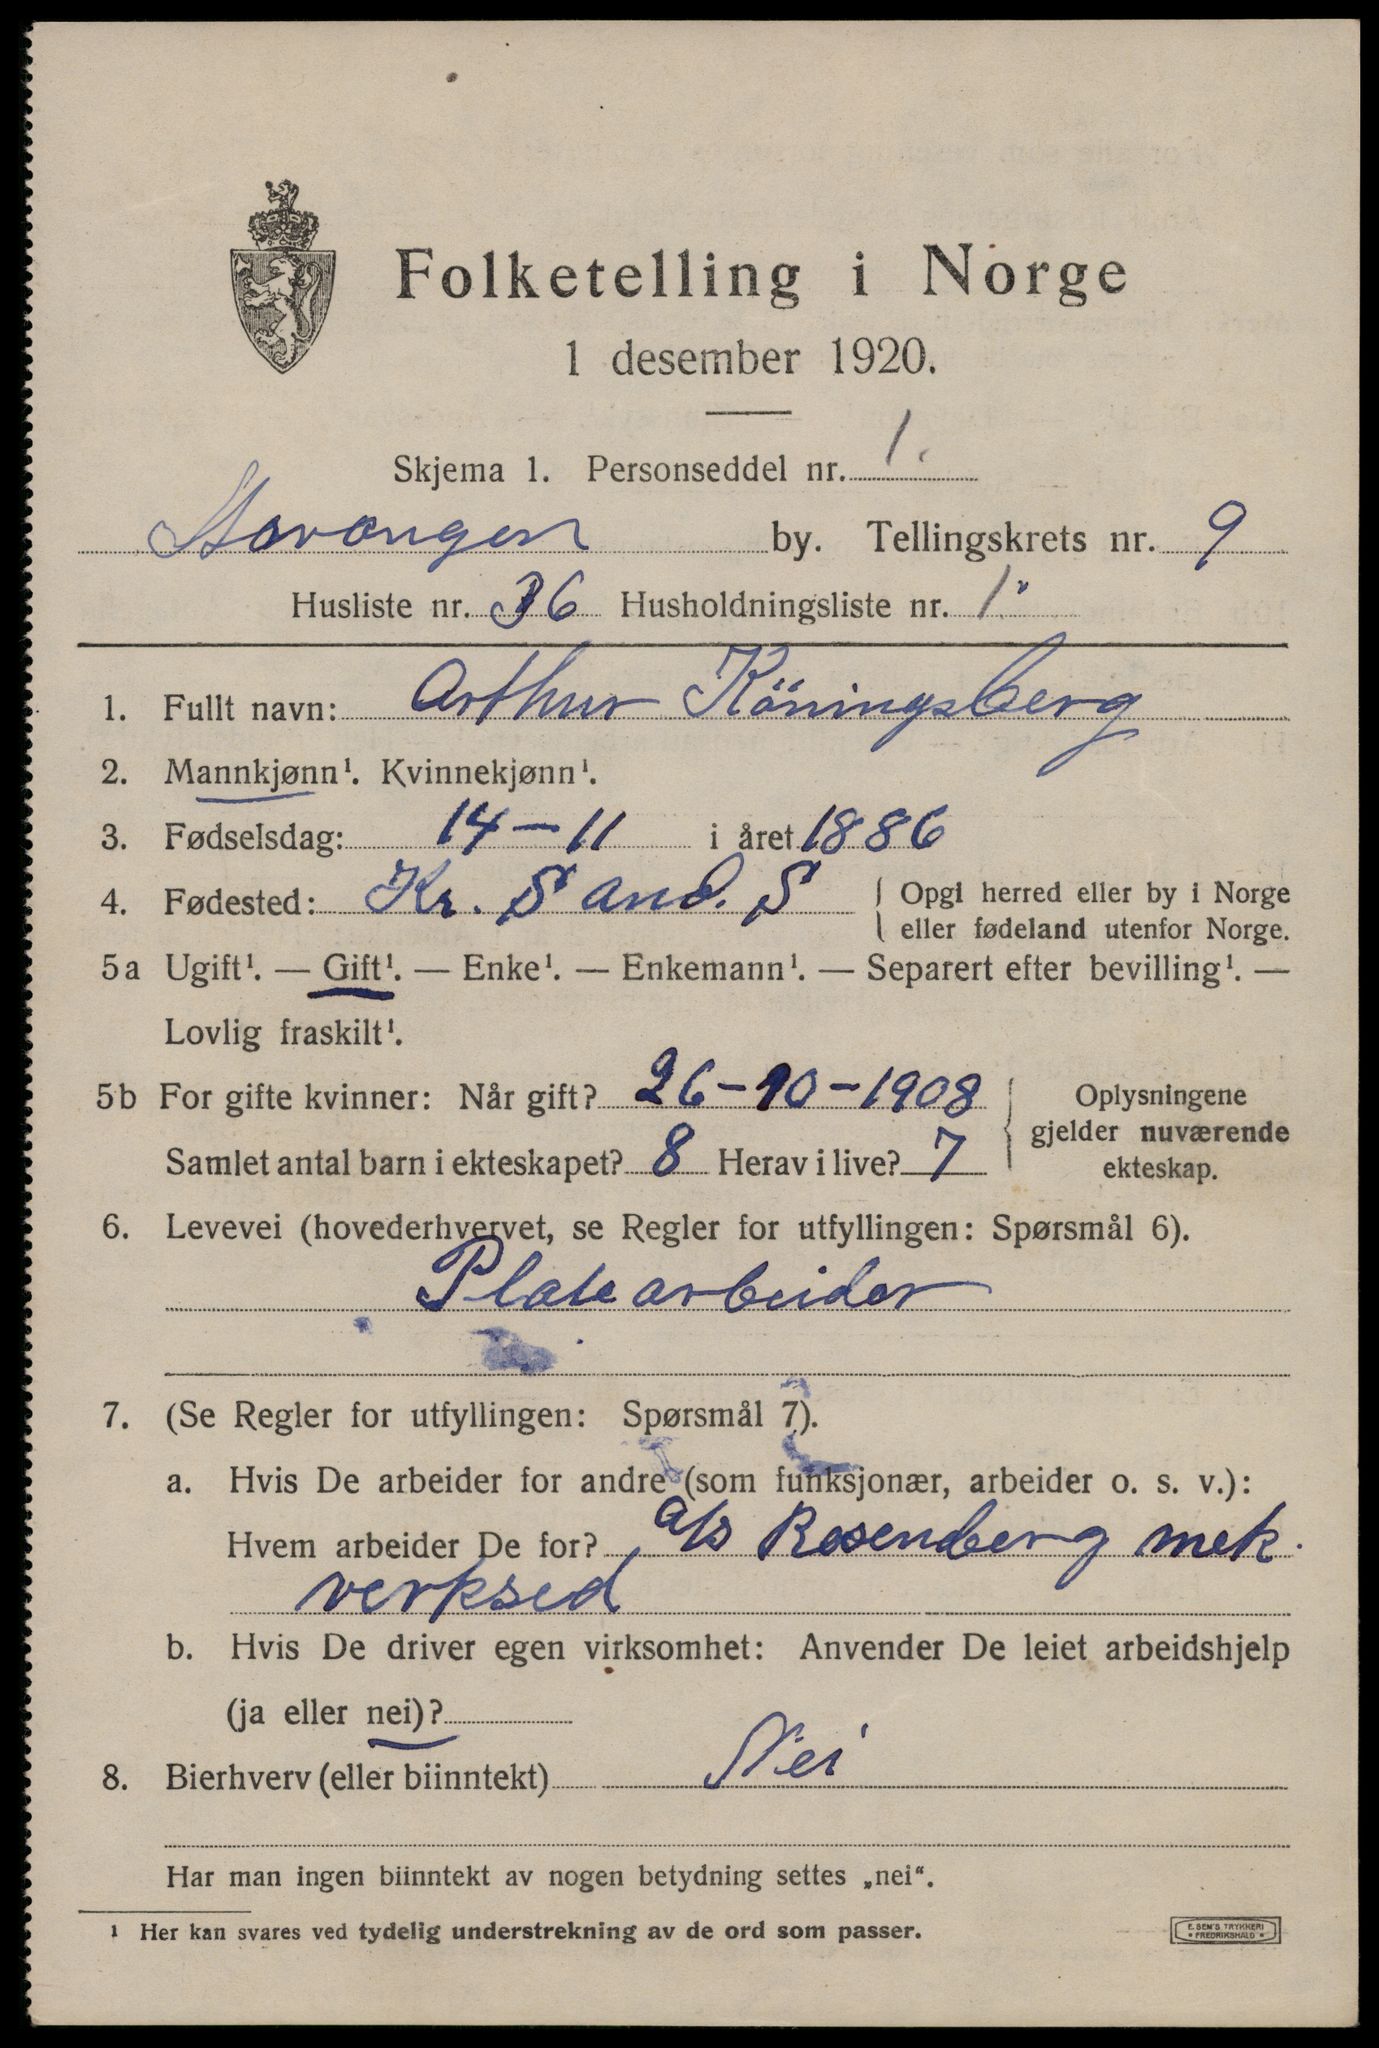 Folketelling i Norge
1 desember 1920.
Skjema 1. Personseddel nr. 1.
Stavanger by. Tellingskrets nr. 9
Husliste nr. 36 Husholdningsliste nr. 1.
1. Fullt navn: Arthur Köningsberg
2. Mannkjønn¹. Kvinnekjønn¹.
3. Fødselsdag: 14-11 i året 1886
4. Fødested: Kr. Sand. S { Opgi herred eller by i Norge
eller fødeland utenfor Norge.
5a Ugift¹. — Gift¹. — Enke¹. — Enkemann¹. — Separert efter bevilling¹. —
Lovlig fraskilt¹.
5b For gifte kvinner: Når gift? 26-10-1908
Samlet antal barn i ekteskapet? 8 Herav i live? 7
Oplysningene
gjelder nuværende
ekteskap.
6. Levevei (hovederhvervet, se Regler for utfyllingen: Spørsmål 6).
Platearbeider
7. (Se Regler for utfyllingen: Spørsmål 7).
a. Hvis De arbeider for andre (som funksjonær, arbeider o. s. v.):
Hvem arbeider De for? a/s Rosenberg mek.
verksed
b. Hvis De driver egen virksomhet: Anvender De leiet arbeidshjelp
(ja eller nei)?
8. Bierhverv (eller biinntekt) Nei
Har man ingen biinntekt av nogen betydning settes „nei“.
¹ Her kan svares ved tydelig understrekning av de ord som passer.
E. SEM'S TRYKKERI
• FREDRIKSHALD •